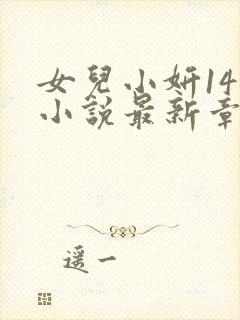 女兒小妍14
小說最新章
遥一